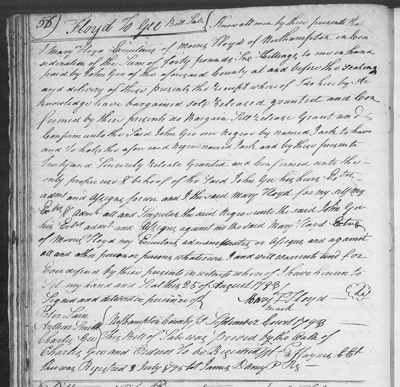 56) Floyd To Gee Bill Sale { Know all men by these presents that
I Mary Floyd Executrix of Morris Floyd of Northampton in Con
sideration of the Sum of forty pounds Six Shillings to me in hand
paid by John Gee of the aforesaid County at and before the Sealing
and delivery of these Presents the receipt whereof I do hereby Ac
knowledge have bargained sold Released granted and Con
firmed by these presents do Bargain Sell Release Grant and
Confirm unto the said John Gee one Negroe by named Jack to have
and To hold the aforesaid Negro named Jack and by these presents
Truly and Sincerely Release Granted and Confirmed unto the
only proper use & behoof of the said John Gee his heirs Extrs
admrs and Assigns forever and I the said Mary Floyd for my self my
Extrs & Admrs all and Singular the said Negroe unto the said John Gee
his Extrs admrs and Assigns, against me the said Mary Floyd Extrix
of Morris Floyd my Executors administrators or Assigns and against
all and other person or persons whatsoever I and will warrant and for
Ever defend by these presents in witness whereof I have hereunto
Set my hand and Seal this 25 of August 1793
Signed and delivered in presence of Mary Floyd
mark
Charles Gee
Northampton County Ss September Court 1793
This Bill of Sale was proved by the Oath of
Charles Gee and Ordered To be Registered